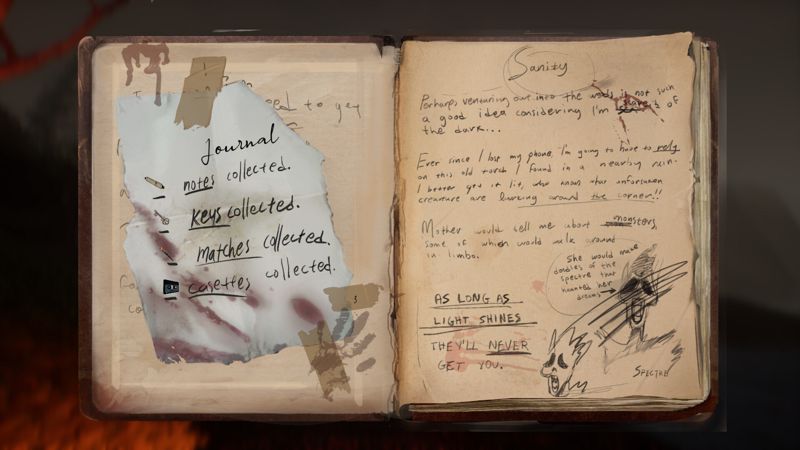 Journal
notes collected.
keys collected.
matches collected.
casettes collected.
3
Sanity
Perhaps venturing out into the woods is not such
a good idea considering I'm scared of
the dark...
Ever since I lost my phone, I'm going to have to rely
on this old torch I found in a nearby ruin.
I better get it lit, who knows that unforseen
creature are lurking around the corner!!
Mother would tell me about monsters,
some of which would walk around
in limbo.
She would make
doodles of the
spectre that
haunted her
dreams
AS LONG AS
LIGHT SHINES
THEY'LL NEVER
GET YOU.
SPECTRE